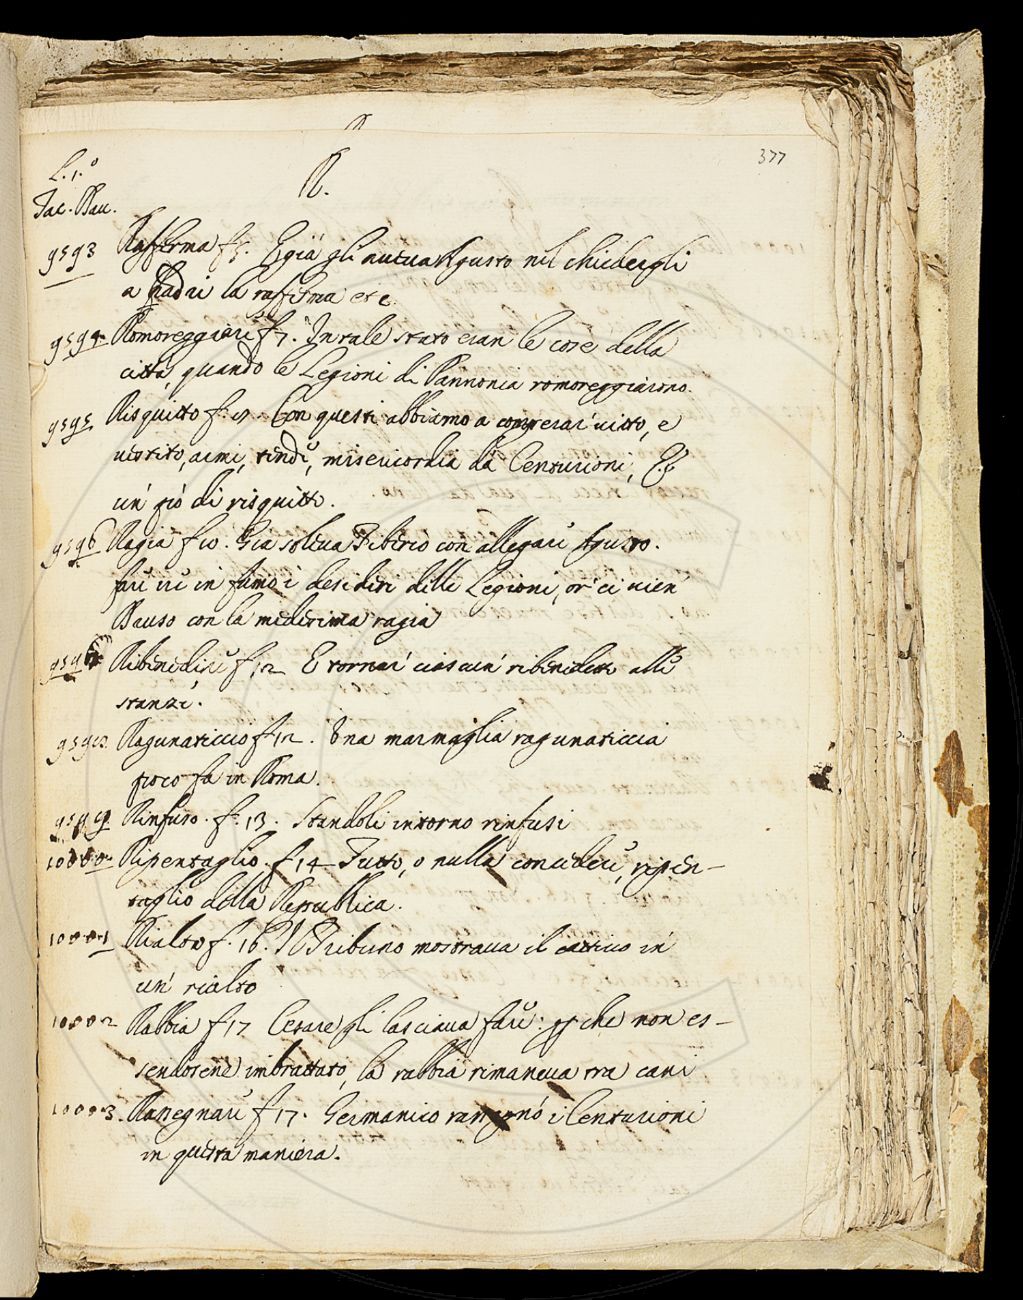 377
R.
L. 1.º
Tac. Dav.
9593 Rafferma f. 5. E già gli aveva Agusto nel chiedergli
a Padri la rafferma etc.
9594 Romoreggiare f. 7. In tale stato eran le cose della
città, quando le Legioni di Pannonia romoreggiarono.
9595 Risquitto f. 9. Con questi abbiamo a comperar vitto, e
vestito, armi, tende, misericordia da Centurioni, E
un pò di risquitto.
9596 Ragia f 10. Gia soleva Tiberio con allegare Agusto.
fare ire in fumo i desideri delle Legioni, or' ci vien'
Dauso con la medesima ragia
Ribenedire f. 12 E tornar' ciascun' ribenedetto alle
stanze.
Ragunaticcio f 12. Una marmaglia ragunaticcia
poco fa in Roma.
Rinfuso. f. 13. Standoli intorno rinfusi
10000 Ripentaglio. f 14 Tutto, o nulla concedere, ripen-
taglio della Republica.
10001 Rialto f. 16. Il Tribuno mostrava il cattivo in'
un' rialto
10002 Rabbia f 17 Cesare gli lasciava fare: che non es-
sendosene imbrattato, la rabbia rimaneva tra cani
10003. Rassegnare f 17. Germanico i Centurioni
in questa maniera.